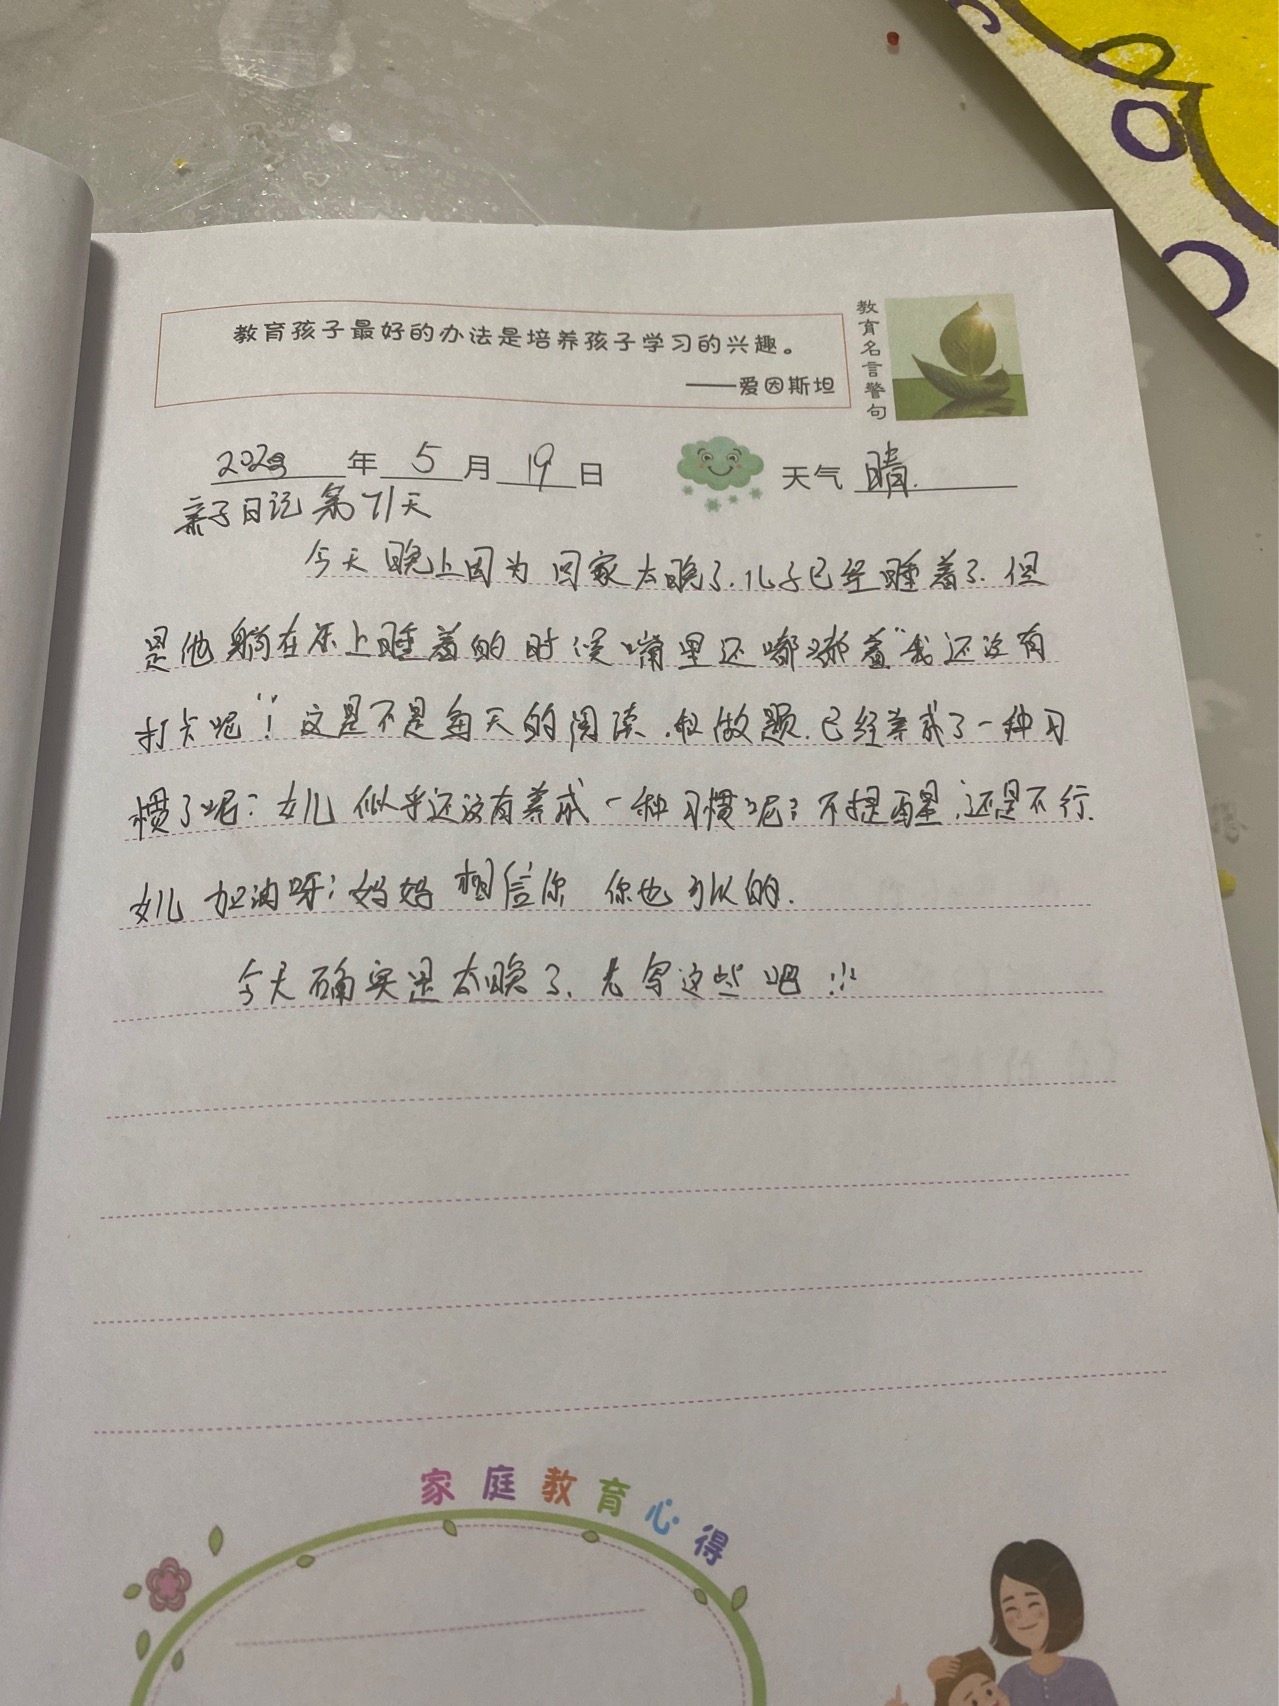 教育孩子最好的办法是培养孩子学习的兴趣。
——爱因斯坦
教育名言警句
2023年 5月 19日
天气 晴.
亲子日记 第71天
今天晚上因为回家太晚了.儿子已经睡着了.但
是他躺在床上睡着的时候嘴里还嘟嘟着“我还没有
打卡呢”！这是不是每天的阅读.和做题.已经养成了一种习
惯了呢？女儿似乎还没有养成一种习惯呢？不提醒.还是不行.
女儿加油呀！妈妈相信你 你也可以的.
今天确实是太晚了.先写这些吧!!!
家庭教育心得